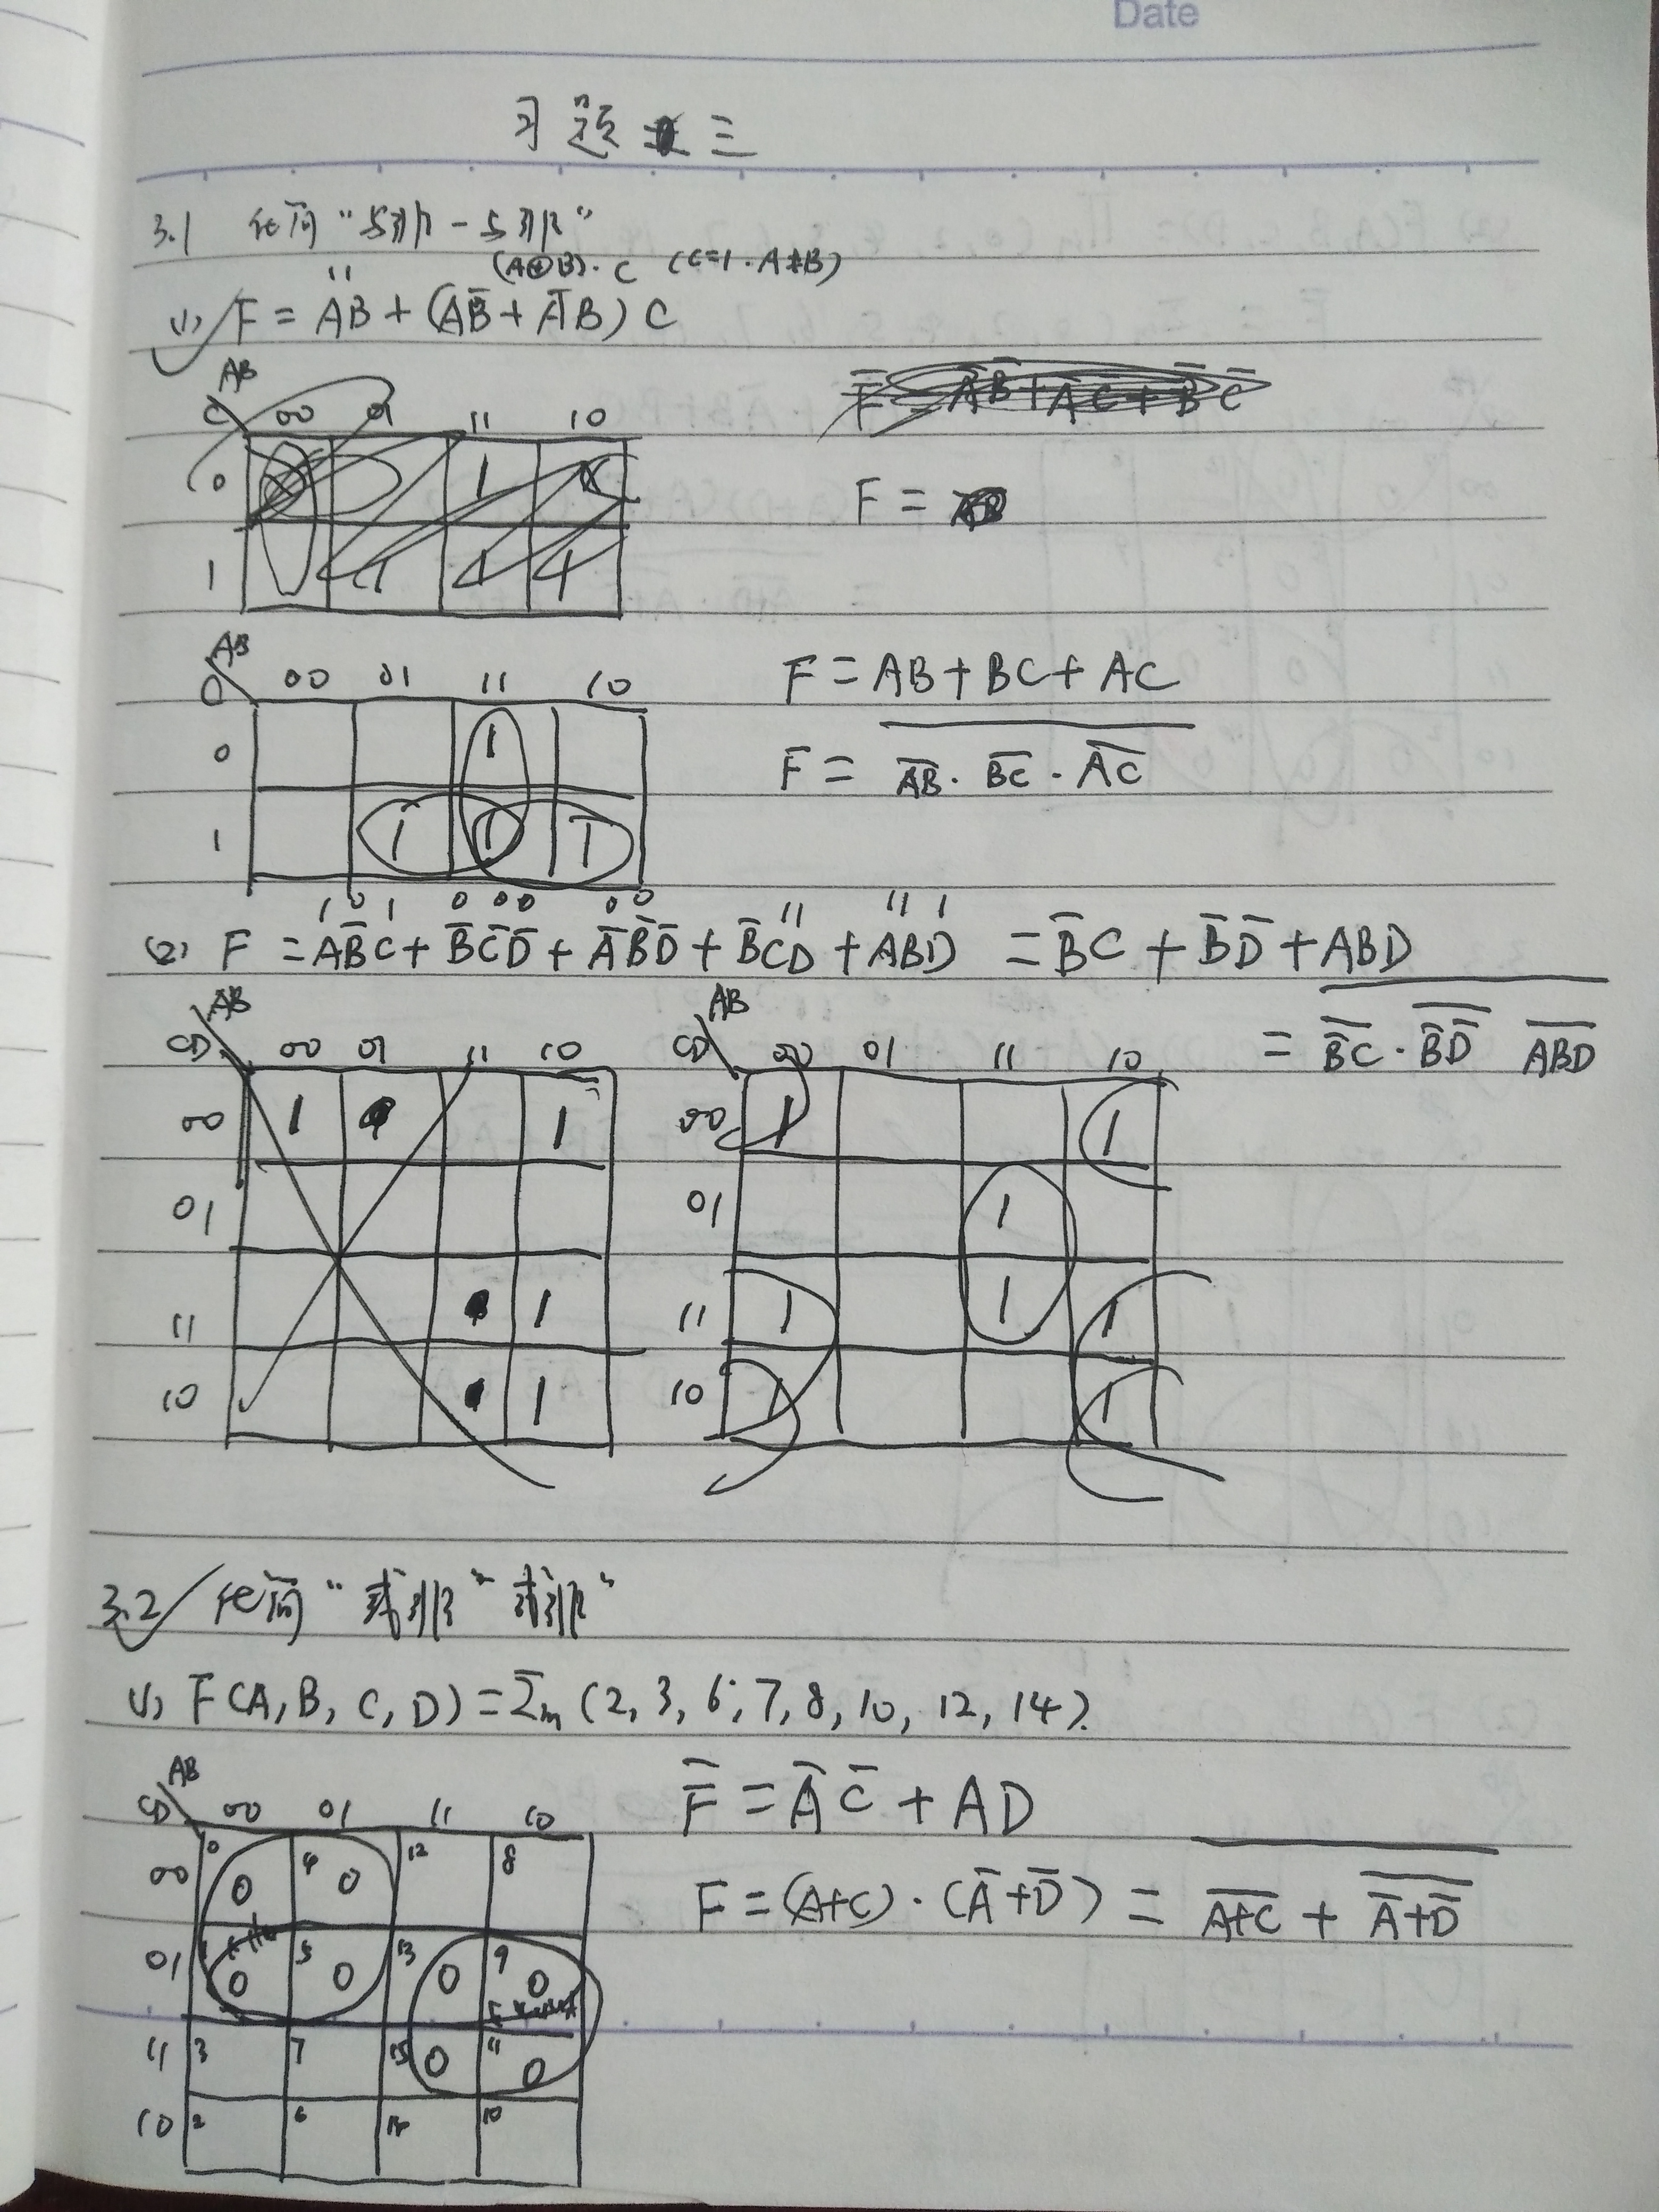 Date
习题三
3.1 化简“与非-与非”
11 (A⊕B)·C (C=1·A≠B)
(1) F = AB + (AB̅ + A̅B) C
AB
C 00 01 11 10
0 1
1 1 1 1
F =
AB
C 00 01 11 10
0 1
1 1 1 1
F = AB + BC + AC
F = \overline{\overline{AB} · \overline{BC} · \overline{AC}}
1 0 1 0 0 0 0 0 11 11 1
(2) F = AB̅C + B̅C̅D̅ + A̅B̅D̅ + B̅CD + ABD = B̅C + B̅D̅ + ABD
= \overline{\overline{B̅C} · \overline{B̅D̅} \overline{ABD}}
AB
CD 00 01 11 10
00 1 1
01
11 1
10 1
AB
CD 00 01 11 10
00 1 1
01 1
11 1 1 1
10 1 1
3.2 化简“或非”“或非”
(1) F(A, B, C, D) = Σm (2, 3, 6, 7, 8, 10, 12, 14).
AB
CD 00 01 11 10
00 0 0 4 0 12 8
01 0 5 0 13 0 9 0
11 3 7 15 0 11 0
10 2 6 14 10
F̅ = A̅ C̅ + AD
F = (A+C) · (A̅+D̅) = \overline{\overline{A+C} + \overline{A̅+D̅}}